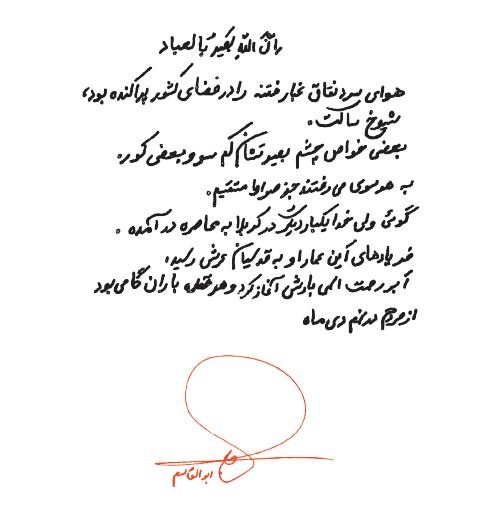 ان الله بصیر بالعباد
هوای سرد نفاق غبار فتنه را در فضای کشور پراکنده بود،
شیوخ ساکت.
بعضی خواص چشم بصیرتشان کم سو و بعضی کور.
به هر سوی می رفتند جز صراط مستقیم.
گوئی ولی خدا یکبار دیگر در کربلا به محاصره در آمده .
فریادهای أین عمار او به قدسیان عرش رسید،
ابر رحمت الهی بارشی آغاز کرد و هر قطره باران گامی بود
از مردم در نهم دی ماه
ابوالقاسم